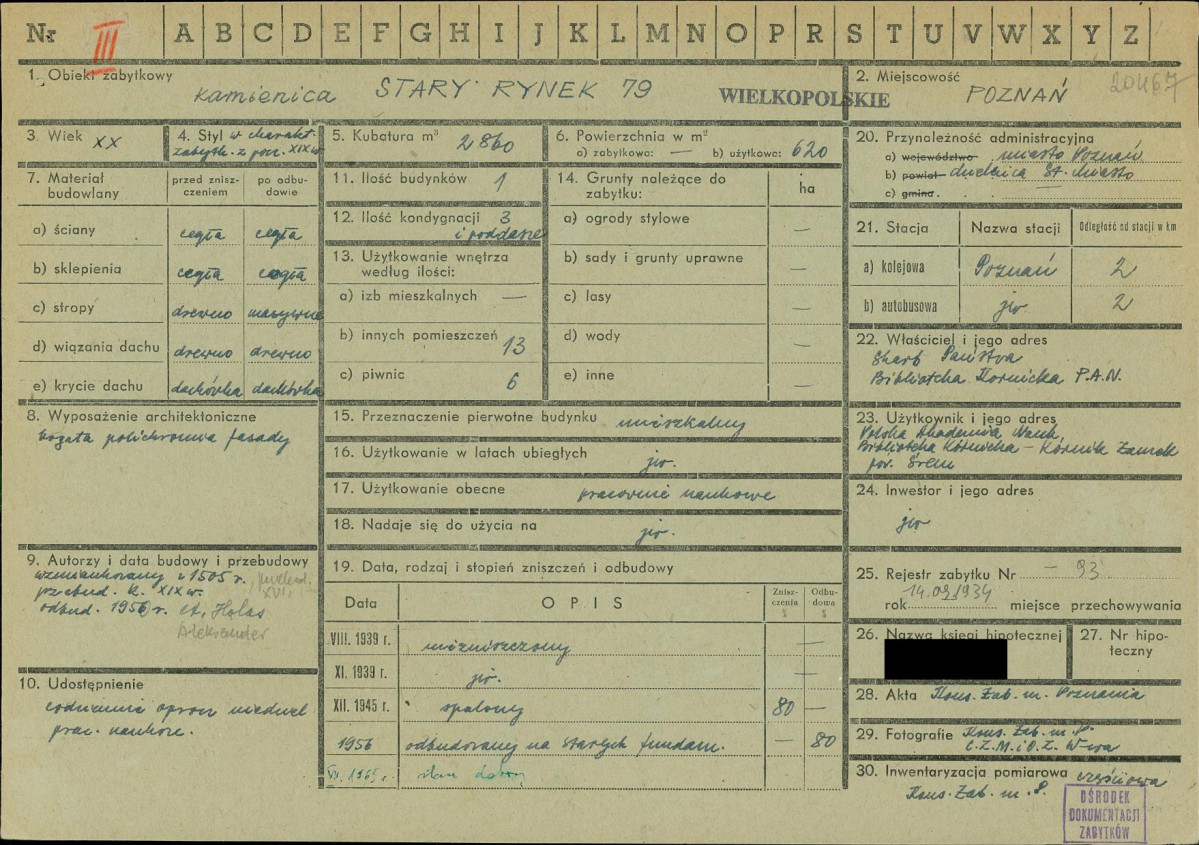 Nr III A B C D E F G H I J K L M N O P R S T U V W X Y Z
1. Obiekt zabytkowy
kamienica STARY RYNEK 79
WIELKOPOLSKIE
2. Miejscowość
POZNAŃ
20467
3. Wiek XX
4. Styl w charakt.
zabytk. z poł. XIX w.
5. Kubatura m³ 2860
6. Powierzchnia w m²
a) zabytkowa: — b) użytkowa: 620
7. Materiał budowlany
przed zniszczeniem
po odbudowie
a) ściany cegła cegła
b) sklepienia cegła cegła
c) stropy drewno masywne
d) wiązania dachu drewno drewno
e) krycie dachu dachówka dachówka
8. Wyposażenie architektoniczne
bogata polichromia fasady
9. Autorzy i data budowy i przebudowy
wzmiankowany z 1505 r.
XVI
przebud. k. XIX w.
odbud. 1956 r. Holas
Aleksander
10. Udostępnienie
codziennie oprócz niedziel
prac. naukow.
11. Ilość budynków 1
12. Ilość kondygnacji 3
i poddasze
13. Użytkowanie wnętrza
według ilości:
a) izb mieszkalnych —
b) innych pomieszczeń 13
c) piwnic 6
14. Grunty należące do
zabytku:
ha
a) ogrody stylowe —
b) sady i grunty uprawne —
c) lasy —
d) wody —
e) inne —
15. Przeznaczenie pierwotne budynku mieszkalny
16. Użytkowanie w latach ubiegłych jw.
17. Użytkowanie obecne pracownie naukowe
18. Nadaje się do użycia na jw.
19. Data, rodzaj i stopień zniszczeń i odbudowy
Data OPIS Zniszczenia % Odbudowa %
VIII. 1939 r. niezniszczony —
XI. 1939 r. jw. —
XII. 1945 r. spalony 80 —
1956 odbudowany na starych fundam. — 80
VII. 1965 r. stan dobry
20. Przynależność administracyjna
a) województwo miasto Poznań
b) powiat dzielnica St. Miasto
c) gmina. —
21. Stacja Nazwa stacji Odległość od stacji w km
a) kolejowa Poznań 2
b) autobusowa jw. 2
22. Właściciel i jego adres
Skarb Państwa
Biblioteka Kórnicka P.A.N.
23. Użytkownik i jego adres
Polska Akademia Nauk,
Biblioteka Kórnicka – Kórnik Zamek
pow. Śrem
24. Inwestor i jego adres
jw
25. Rejestr zabytku Nr – 93
rok 14.09.1934 miejsce przechowywania
26. Nazwa księgi hipotecznej
27. Nr hipoteczny
28. Akta Kons. Zab. m. Poznania
29. Fotografie Kons. Zab. m. P.
C.Z.M.i O.Z. W-wa
30. Inwentaryzacja pomiarowa częściowa
Kons. Zab. m. P.
OŚRODEK
DOKUMENTACJI
ZABYTKÓW